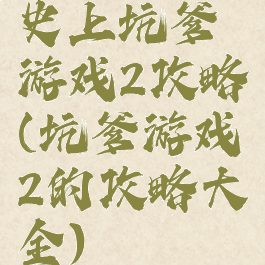 史上坑爹
游戏2攻略
(坑爹游戏
2的攻略大
全)